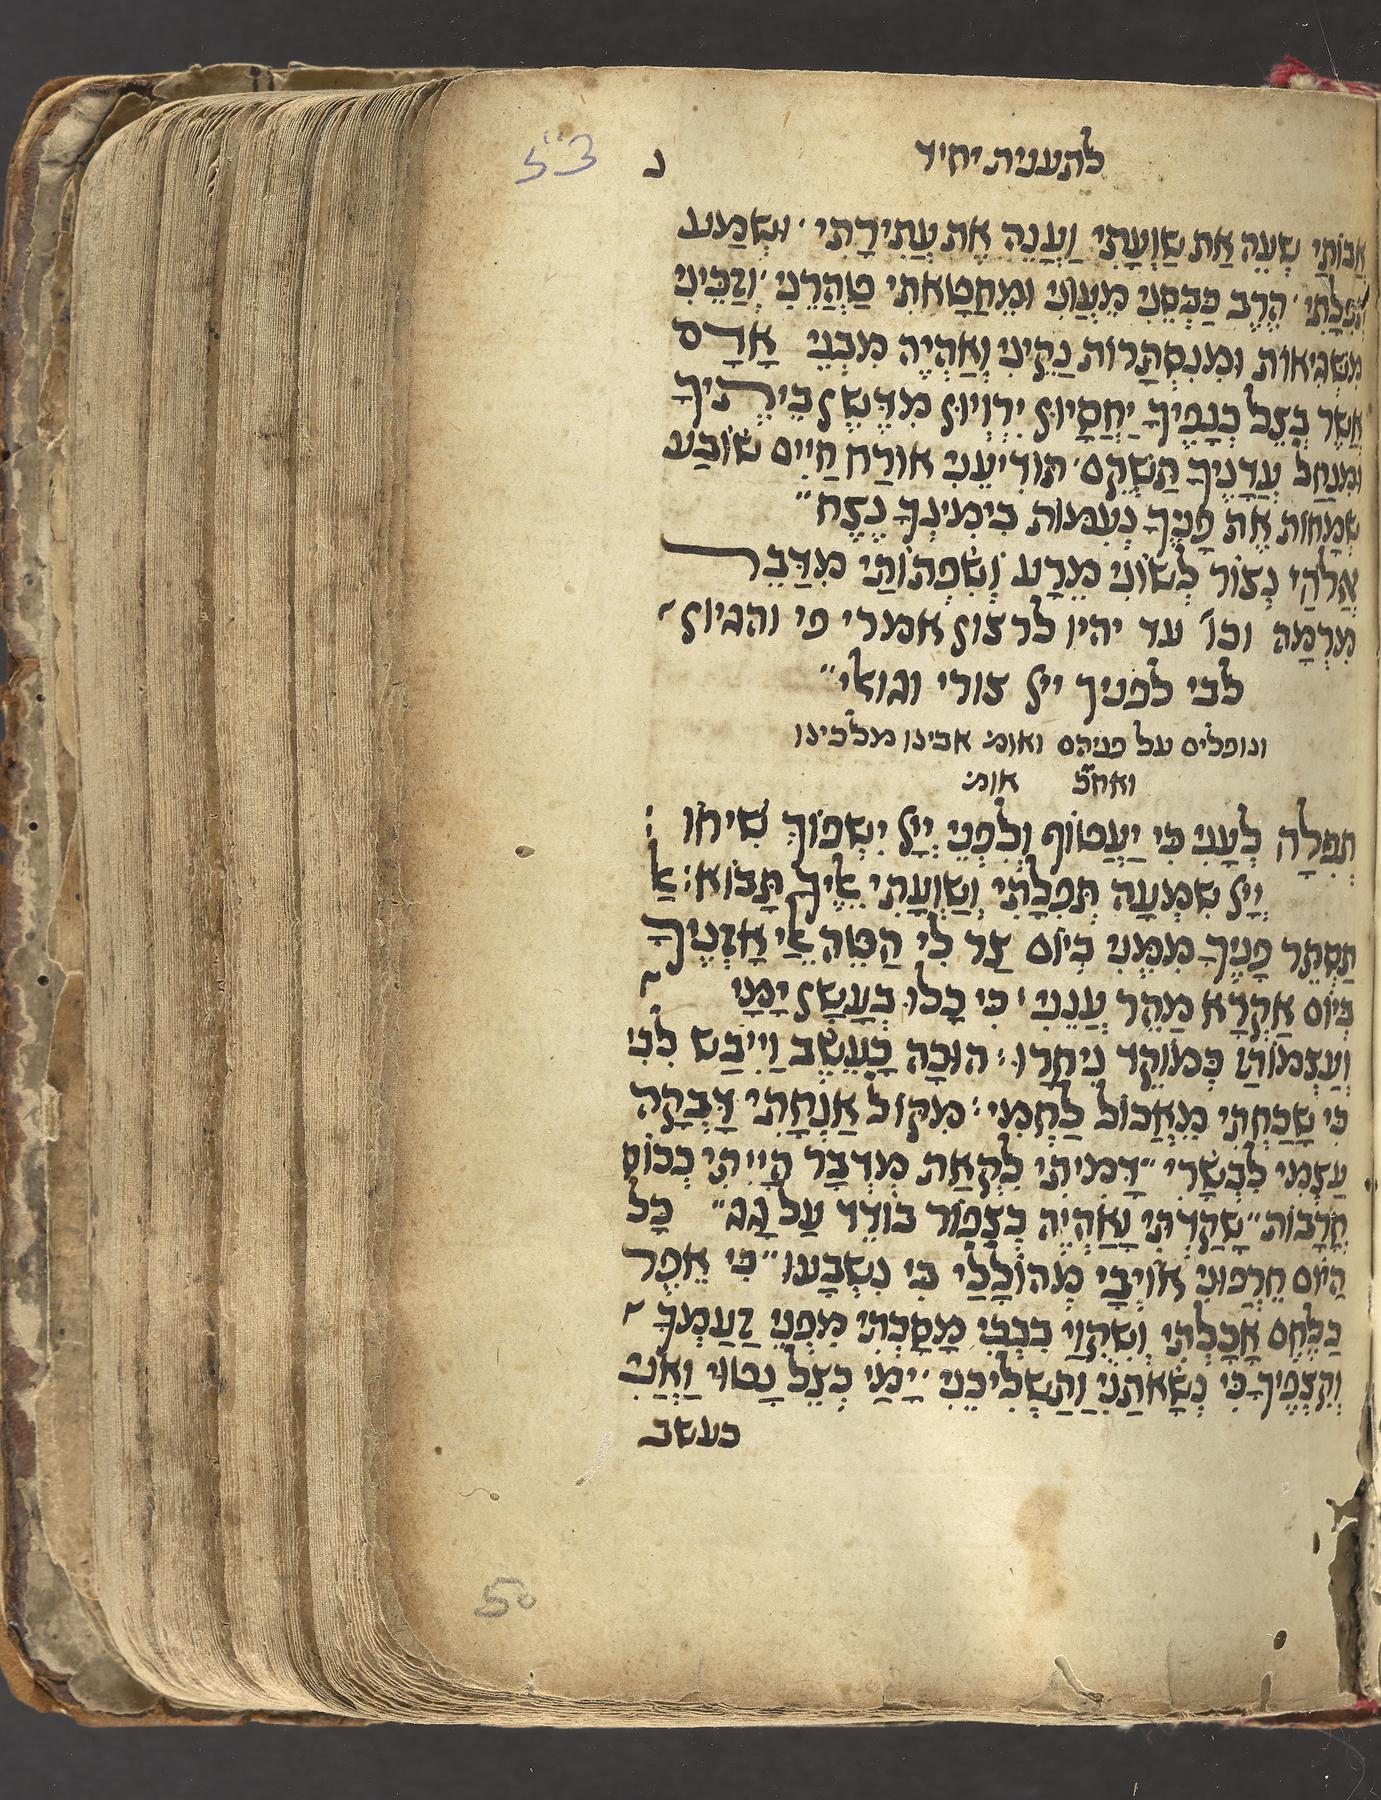 לתענית יחיד
נ
5"3
אֲבוֹתַי שְׁעֵה אֶת שַׁוְעָתִי וַעֲנֵה אֶת עֲתִירָתִי וּשְׁמַע
תְּפִלָּתִי הֶרֶב כַּבְּסֵנִי מֵעֲוֹנִי וּמֵחַטָּאתִי טַהֲרֵנִי וְזַכֵּינִי
מִשְּׁגִיאוֹת וּמִנִסְתָּרוֹת נַקֵּינִי וְאֶהְיֶה מִבְּנֵי אָדָם
אֲשֶׁר בְּצֵל כְּנָפֶיךָ יֶחֱסָיוּן יִרְוְיוּן מִדֶּשֶׁן בֵּיתֶיךָ
וּמִנַּחַל עֲדָנֶיךָ תַּשְׁקֵם תּוֹדִיעֵנִי אוֹרַח חַיִּים שׂוֹבַע
שְׂמָחוֹת אֶת פָּנֶיךָ נְעִמוֹת בִּימִינְךָ נֶצַח
אֱלֹהַי נְצוֹר לְשׁוֹנִי מֵרָע וְשִׂפְתוֹתַי מִדַּבֵּר
מִרְמָה וכו' עד יהיו לרצון אמרי פי והגיון
לבי לפניך ייל צורי וגואלי
ונופלים על פניהם ואומ' אבינו מלכינו
ואח"כ אומ'
תְּפִלָּה לְעָנִי כִּי יַעֲטוֹף וְלִפְנֵי יְיָל יִשְׁפּוֹךְ שִׂיחוֹ
יְיָל שִׁמְעָה תְּפִלָּתִי וְשַׁוְעָתִי אֵלֶיךָ תָּבוֹא: אַל
תַּסְתֵּר פָּנֶיךָ מִמֶּנִּי בְּיוֹם צַר לִי הַטֵּה אֵלַי אָזְנֶיךָ
בְּיוֹם אֶקְרָא מַהֵר עֲנֵנִי כִּי כָלוּ בְעָשָׁן יָמָי
וְעַצְמוֹתַי כְּמוֹקֵד נִיחָרוּ: הוּכָּה כָּעֵשֶׂב וַיִּיבַשׁ לִבִּי
כִּי שָׁכַחְתִּי מֵאֲכוֹל לַחְמִי: מִקּוֹל אַנְחָתִי דָּבְקָה
עַצְמִי לִבְשָׂרִי דָּמִיתִי לִקְאַת מִדְבָּר הָיִיתִי כְּכוֹס
חֳרָבוֹת שָׁקַדְתִּי וָאֶהְיֶה כְּצִפּוֹר בּוֹדֵד עַל גָּג כָּל
הַיּוֹם חֵרְפוּנִי אוֹיְבָי מְהוֹלָלַי בִּי נִשְׁבָּעוּ כִּי אֵפֶר
כַּלֶּחֶם אָכָלְתִּי וְשִׁקּוּיַי בִּבְכִי מָסָכְתִּי מִפְּנֵי זַעַמְךָ
וְקִצְפֶּיךָ כִּי נְשָׂאתַנִי וַתַּשְׁלִיכֵנִי יָמַי כְּצֵל נָטוּי וַאֲנִי
כעשב
50